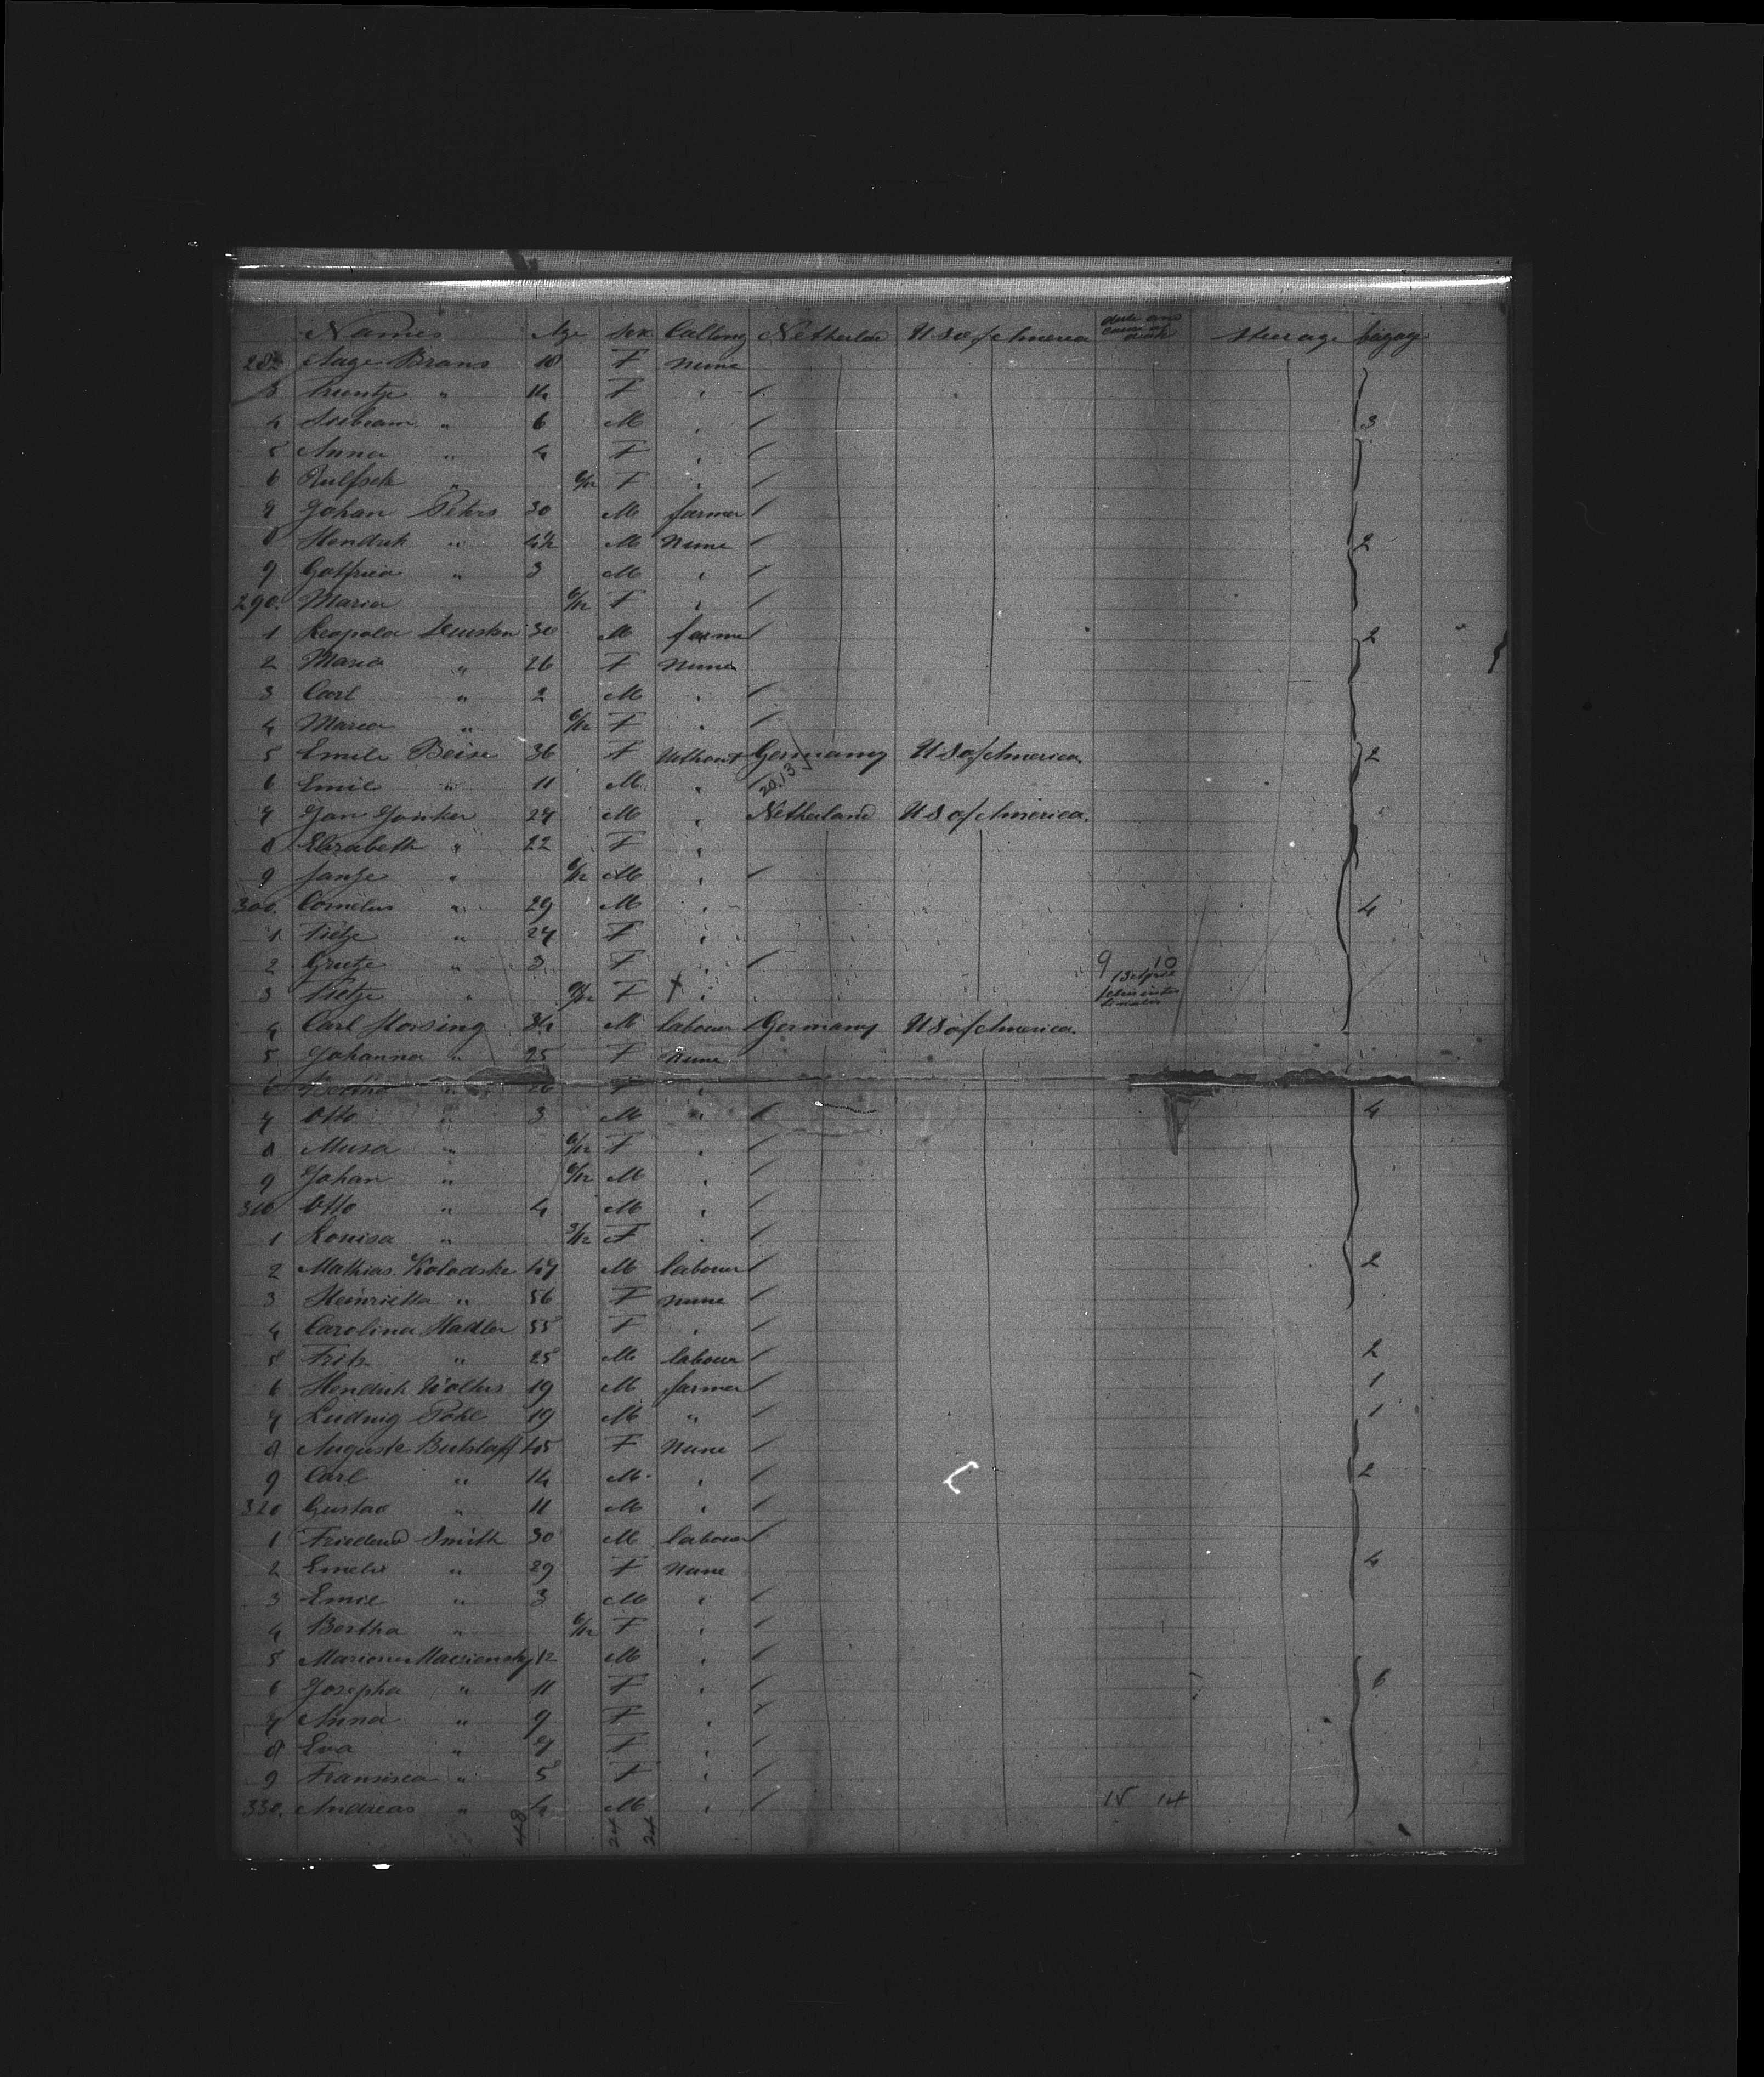 Names Age Sex Calling Netherland U S of America date and cause of death Steerage bagage
282 Aage Brans 18 F None
3 Trientje " 14 F "
4 " 6 M " 3
5 Anna " 4 F "
6 " 6/12 F "
7 Johan Peters 30 M farmer
8 Hendrik " 4½ M None 2
9 Gotfried " 3 M "
290. Maria 6/12 F "
1 Leopold 30 M farmer 2
2 Maria " 26 F None
3 Carl " 2 M "
4 Maria " 6/12 F "
5 Emile Beise 36 F Without Germany U S of America 2
6 Emil " 11 M " 20.13
7 Jan Jonker 27 M " Netherland U S of America.
8 Elizabeth " 22 F "
9 Jantje " 6/12 M "
300. Cornelus " 29 M " 4
1 Tietje " 27 F "
2 Grietje " 3 F " 9 10
3 Tietje " 9/12 F + "
4 Carl Horsing 34 M labourer Germany U S of America
5 Johanna " 25 F None
6 " 26 F "
7 Otto " 3 M " 4
8 Musa " 6/12 F "
9 Johan " 6/12 M "
310 Otto " 4 M "
1 Louisa " 3/12 F "
2 Mathias Kolodske 47 M labourer 2
3 Heinrietta " 56 F None
4 Carolina Hadler 55 F "
5 Fritz " 25 M labourer 2
6 Hendrik Wolters 19 M farmer 1
7 Ludwig Pohl 19 M " 1
8 Auguste Butslaff 45 F None
9 Carl " 14 M " 2
320 Gustav " 11 M "
1 Friederid Smith 30 M labourer
2 Emelie " 29 F None 4
3 Emil " 3 M "
4 Bertha " 6/12 F "
5 12 M "
6 Josepha " 11 F " 6
7 Anna " 9 F "
8 Eva " 7 F "
9 Fransisca " 5 F "
330. Andreas " 4 M " 15 14
48 24 24